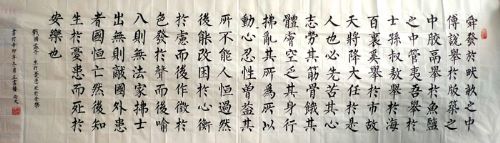 舜發於畎畝之中
傅說舉於版築之
中膠鬲舉於魚鹽
之中管夷吾舉於
士孫叔敖舉於海
百裏奚舉於市故
天將降大任於是
人也必先苦其心
志勞其筋骨餓其
體膚空乏其身行
拂亂其所為所以
動心忍性曾益其
所不能人恒過然
後能改困於心衡
於慮而後作徵於
色發於聲而後喻
入則無法家拂士
出無則敵國外患
者國恒亡然後知
生於憂患而死於
安樂也
戰國孟子 生於憂患死於安樂